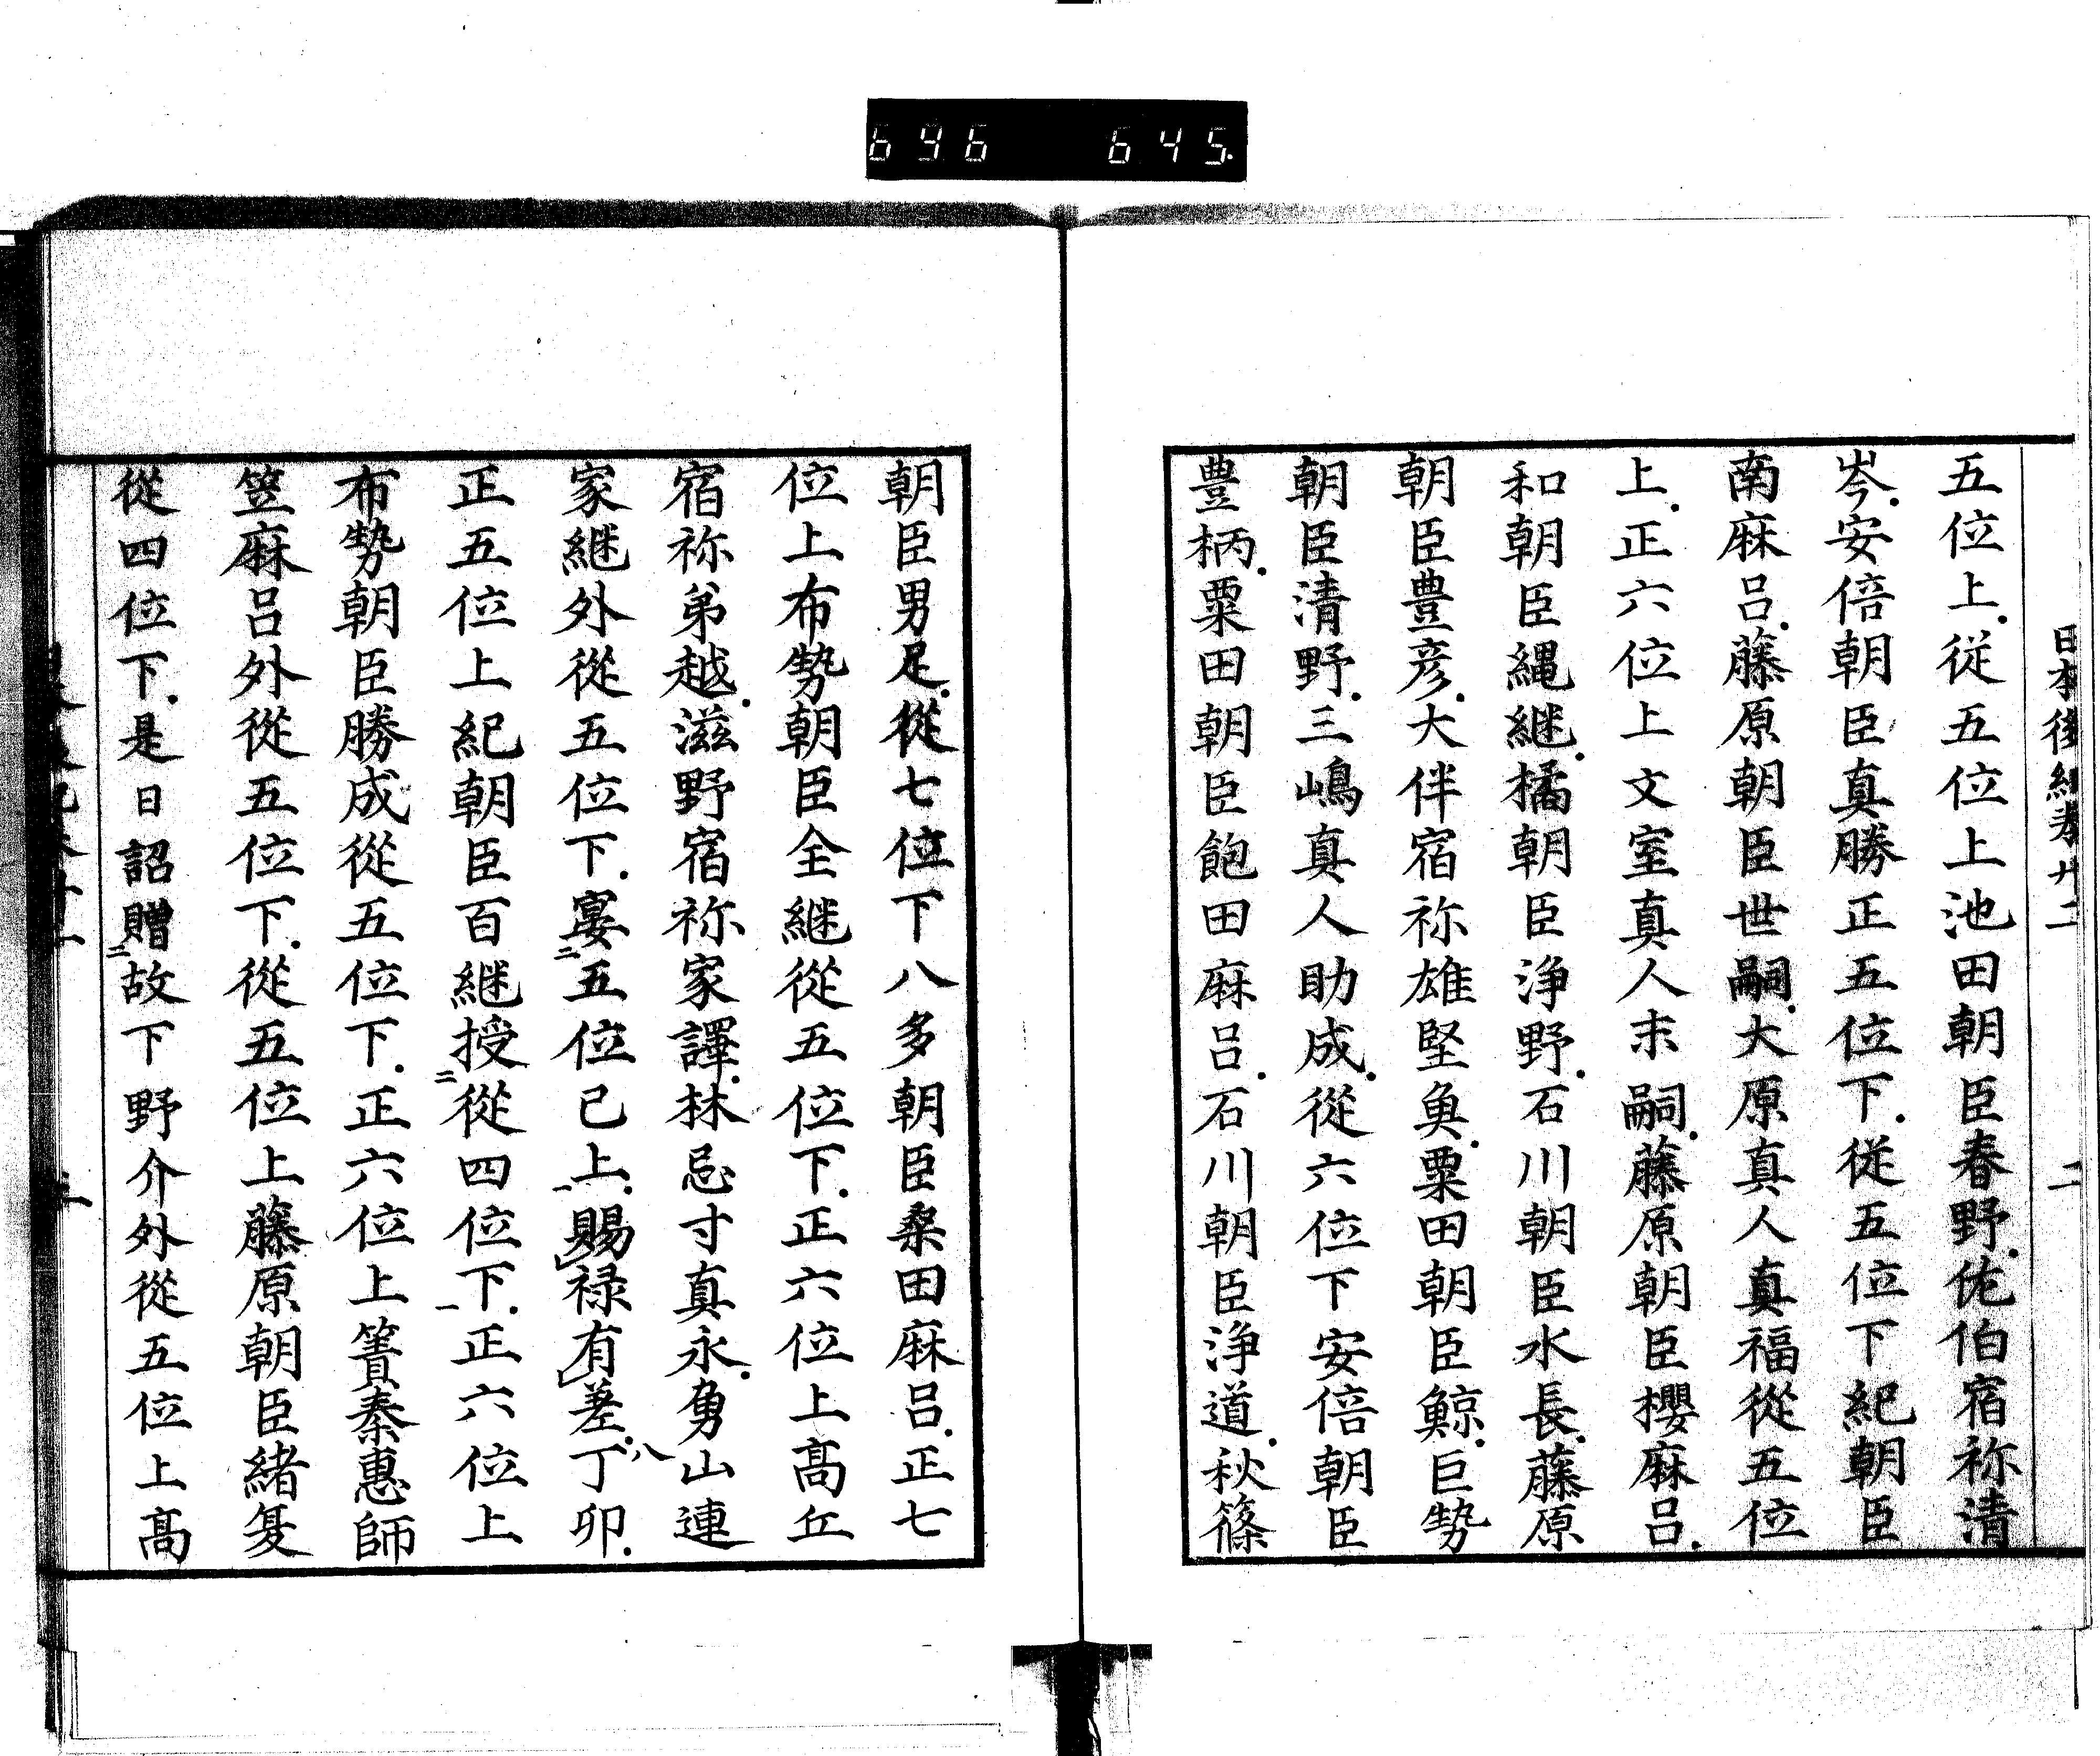 646 645
日本後紀卷廿二 二
五位上從五位上池田朝臣春野佐伯宿祢清
岑安倍朝臣真勝正五位下從五位下紀朝臣
南麻呂藤原朝臣世嗣大原真人真福從五位
上正六位上文室真人末嗣藤原朝臣櫻麻呂
和朝臣縄継橘朝臣浄野石川朝臣水長藤原
朝臣豊彦大伴宿祢雄堅魚粟田朝臣鯨巨勢
朝臣清野三嶋真人助成從六位下安倍朝臣
豊柄粟田朝臣飽田麻呂石川朝臣浄道秋篠
朝臣男足從七位下八多朝臣桑田麻呂正七
位上布勢朝臣全継從五位下正六位上髙丘
宿祢弟越滋野宿祢家譯林忌寸真永勇山連
家継外從五位下宴二五位已上一賜禄有差丁八卯
正五位上紀朝臣百継授二從四位下一正六位上
布勢朝臣勝成從五位下正六位上簀秦惠師
笠麻呂外從五位下從五位上藤原朝臣緒夏
從四位下是日詔贈二故下野介外從五位上髙